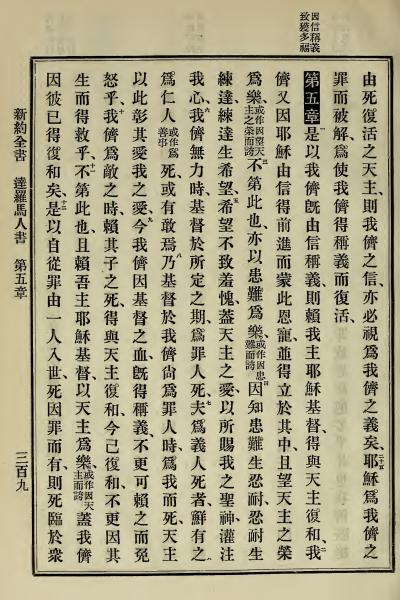 因信稱義
致獲多福
由死復活之天主、則我儕之信、亦必視爲我儕之義矣、二十五耶穌爲我儕之
罪而被解、爲使我儕得稱義而復活、
第五章 是以我儕旣由信稱義、則賴我主耶穌基督、得與天主復和、二我
儕又因耶穌由信得前進而蒙此恩寵、並得立於其中、且望天主之榮
爲樂、或作因望天主之榮而誇三不第此也、亦以患難爲樂、或作因患難而誇因知患難生忍耐、四忍耐生
練達、練達生希望、五希望不致羞愧、蓋天主之愛、以所賜我之聖神灌注
我心、六我儕無力時、基督於所定之期、爲罪人死、七夫爲義人死者鮮有之、
爲仁人或作爲善事死、或有敢焉、八乃基督於我儕尙爲罪人時、爲我而死、天主
以此彰其愛我之愛、九今我儕因基督之血、旣得稱義、不更可賴之而免
怒乎、十我儕爲敵之時、賴其子之死、得與天主復和、今已復和、不更因其
生而得救乎、十一不第此也、且賴吾主耶穌基督、以天主爲樂、或作因天主而誇蓋我儕
因彼已得復和矣、十二是以自從罪由一人入世、死因罪而有、則死臨於衆
新約全書 達羅馬人書 第五章 三百九